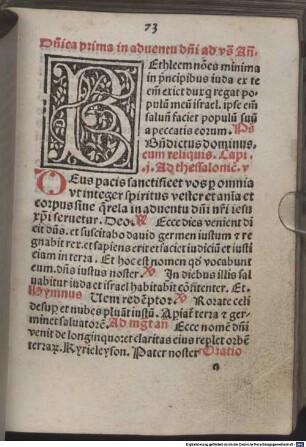 73
Dñica prima in aduentu dñi ad vs̃ Añ.
BEthleem nões minima
in pncipibus iuda ex te
em̃ exiet dux q̃ regat po
pulũ meũ israel. ipse em̃
saluũ faciet populũ suũ
a peccatis eorum. Ps
Bñdictus dominus,
cum reliquis. Capi.
j. Ad thessalonic. v
DEus pacis sanctificet vos p omnia
vt integer spiritus vester et aĩa et
corpus sine q̃rela in aduentu dñi nr̃i iesu
xp̃i seruetur. Deo. ℟ Ecce dies venient di
cit dñs. et suscitabo dauid germen iustum ⁊ re
gnabit rex. et sapiens erit et faciet iudiciũ et iusti
ciam in terra. Et hoc est nomen qd̃ vocabunt
eum. dñs iustus noster ℣ In diebus illis sal
uabitur iuda et israel habitabit cõfitenter. Et.
Hymnus Uem redẽptor ℣ Rorate celi
desup et nubes pluãt iustũ. Apiat̃ terra ⁊ ger
minet saluatorẽ. Ad mgt an Ecce nomẽ dñi
venit de longinquo et claritas eius replet orbẽ
terraꝝ. Kyrieleyson. Pater noster Oratio
a